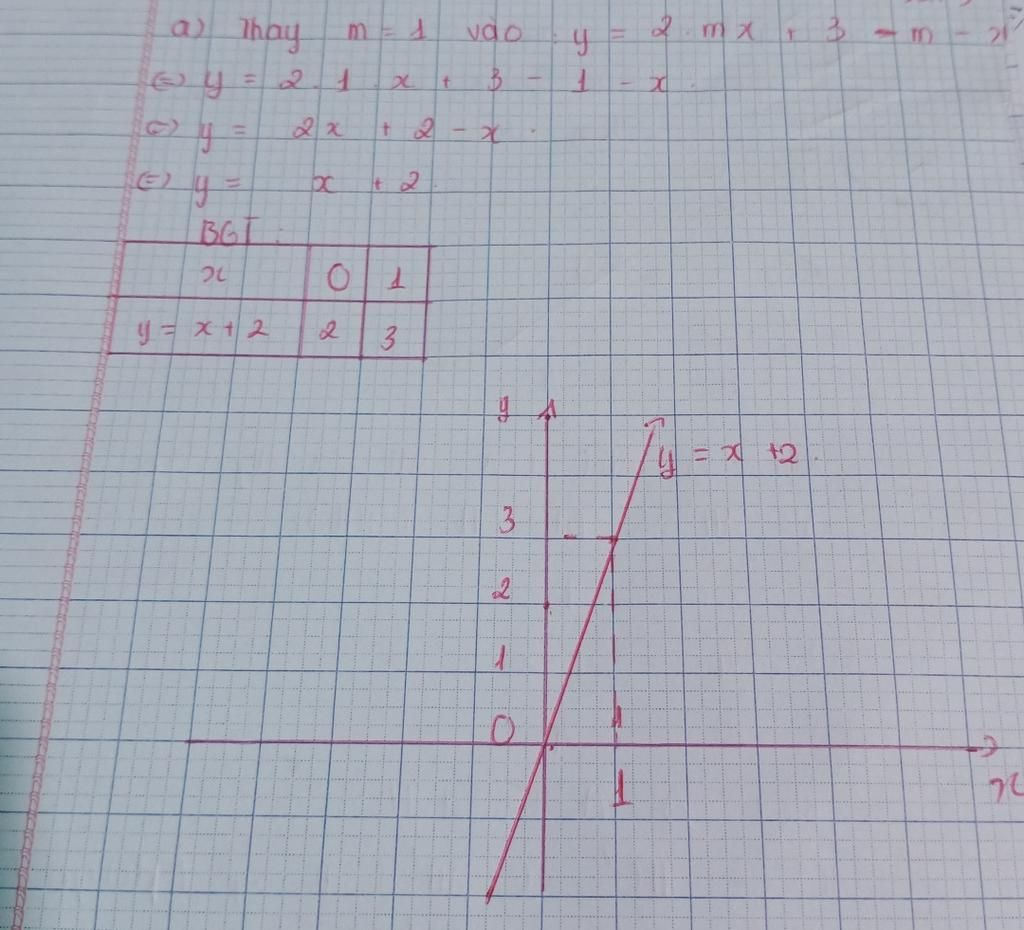 a) Thay m = 1 vào y = 2.mx + 3 - m - x
(=) y = 2.1 x + 3 - 1 - x.
(=) y = 2x + 2 - x.
(=) y = x + 2.
BGT:
x 0 1
y = x + 2 2 3
y
y = x + 2.
3
2
1
0
1
x